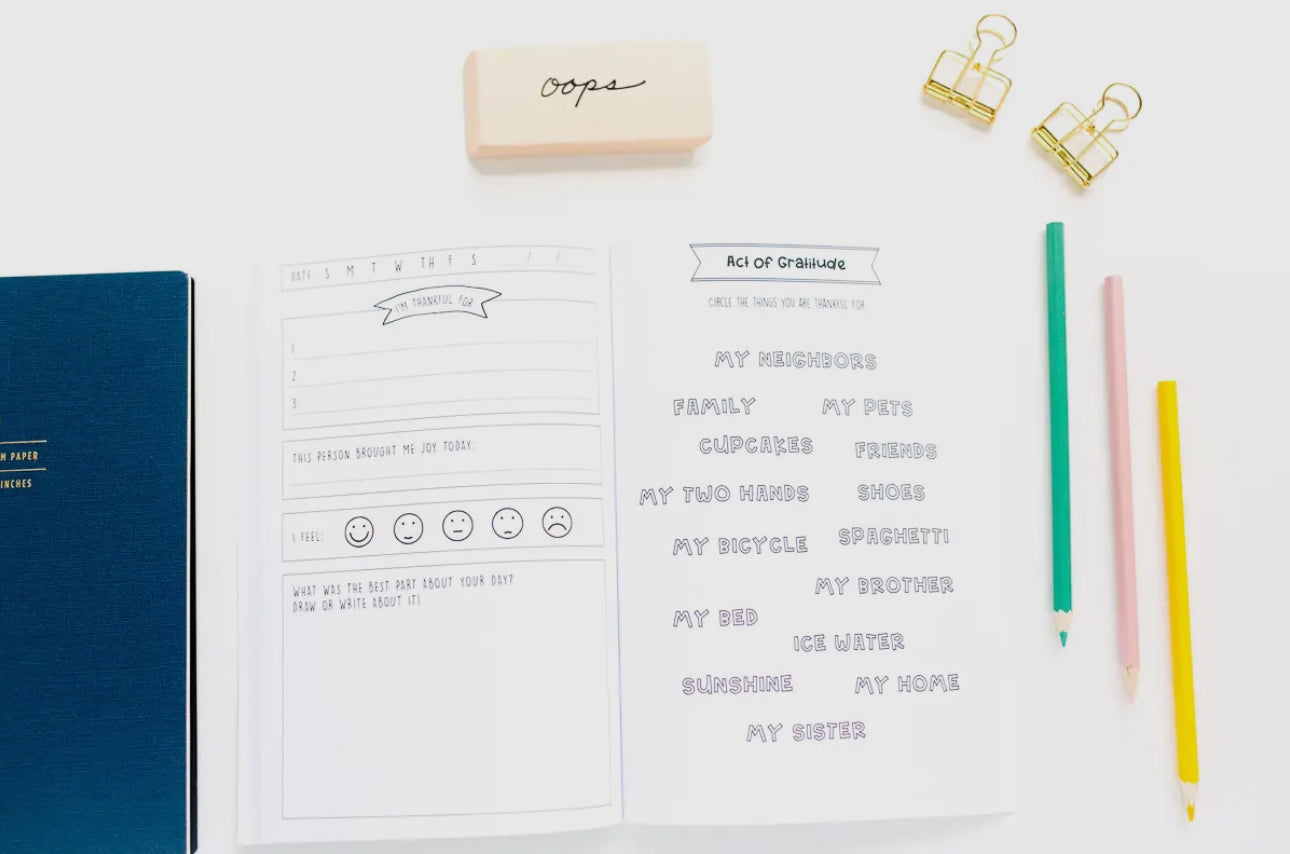 oops
M PAPER
INCHES
DATE S M T W TH F S / /
I'M THANKFUL FOR
1
2
3
THIS PERSON BROUGHT ME JOY TODAY:
I FEEL:
WHAT WAS THE BEST PART ABOUT YOUR DAY?
DRAW OR WRITE ABOUT IT!
Act Of Gratitude
CIRCLE THE THINGS YOU ARE THANKFUL FOR
MY NEIGHBORS
FAMILY MY PETS
CUPCAKES FRIENDS
MY TWO HANDS SHOES
MY BICYCLE SPAGHETTI
MY BROTHER
MY BED
ICE WATER
SUNSHINE MY HOME
MY SISTER